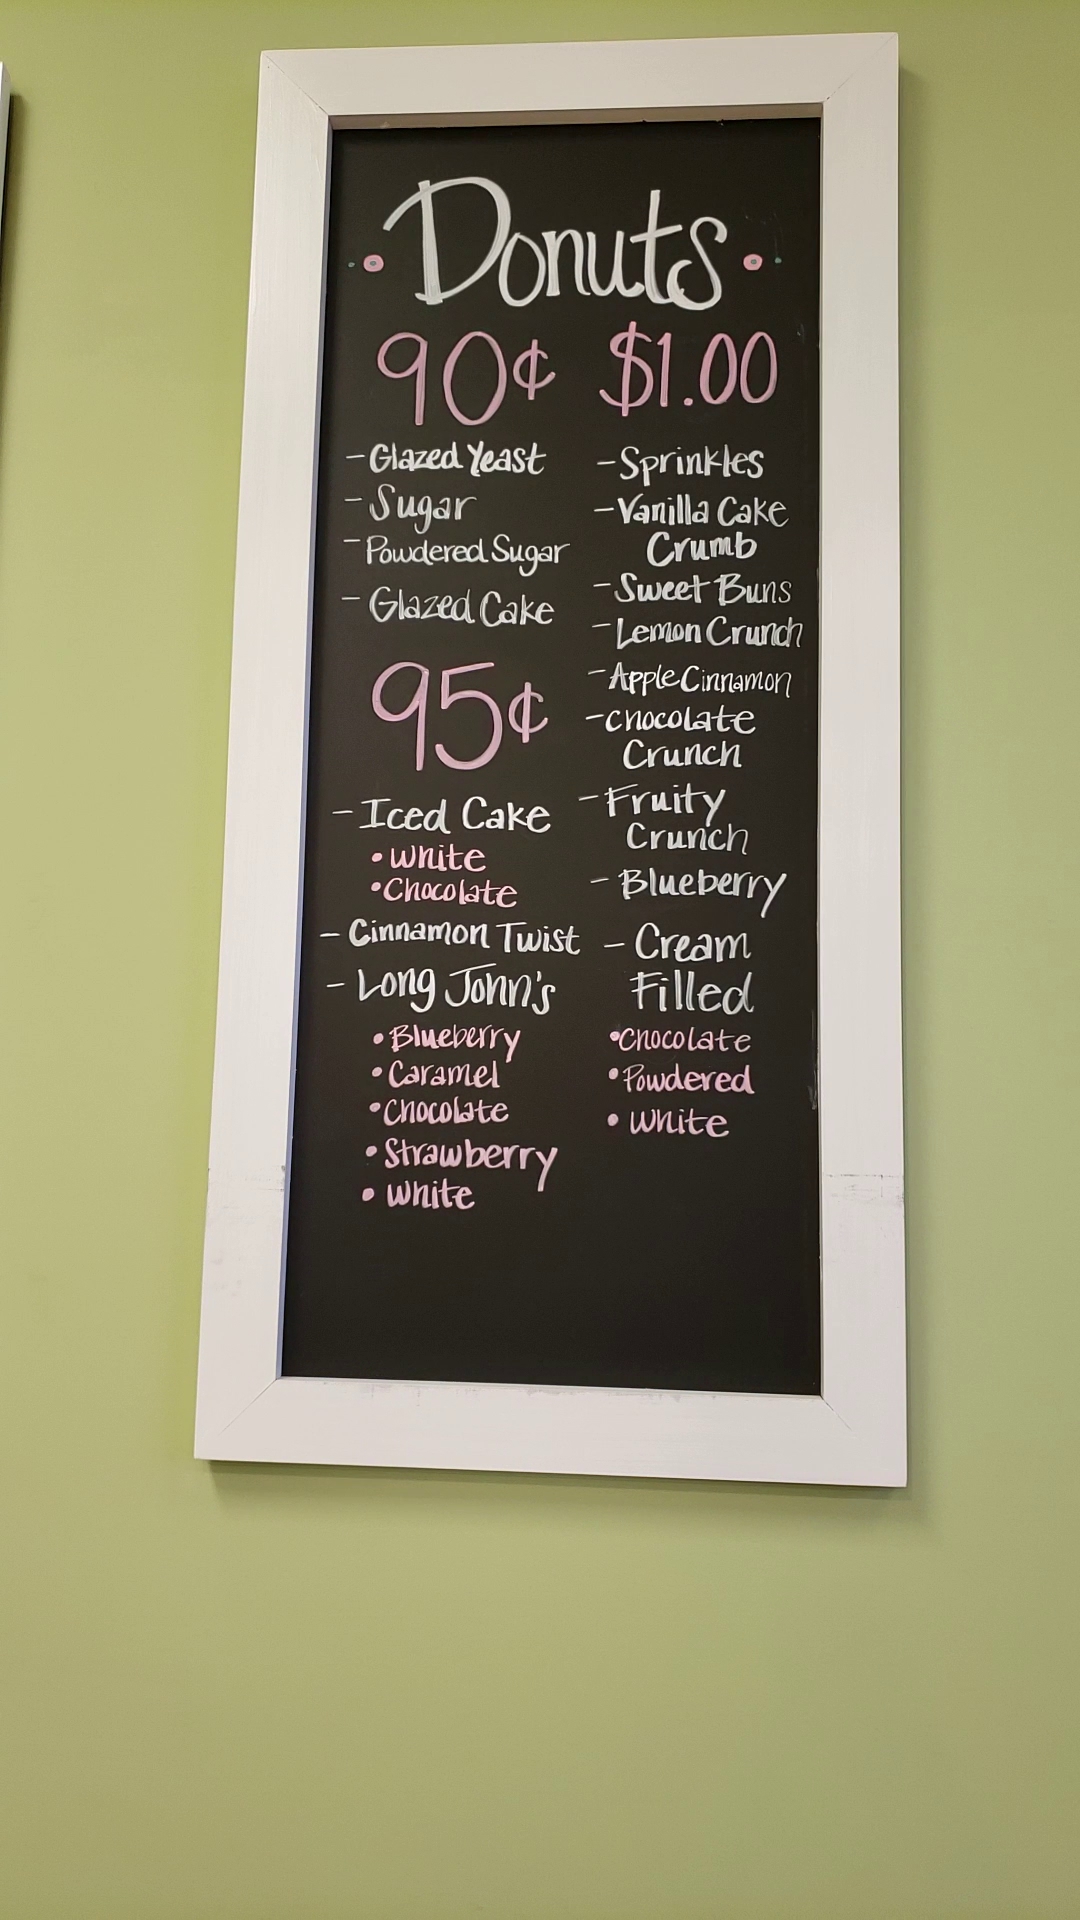 Donuts
90¢
- Glazed Yeast
- Sugar
- Powdered Sugar
- Glazed Cake
95¢
- Iced Cake
• White
• Chocolate
- Cinnamon Twist
- Long John's
• Blueberry
• Caramel
• Chocolate
• Strawberry
• White
$1.00
- Sprinkles
- Vanilla Cake
Crumb
- Sweet Buns
- Lemon Crunch
- Apple Cinnamon
- Chocolate
Crunch
- Fruity
Crunch
- Blueberry
- Cream
Filled
• Chocolate
• Powdered
• White